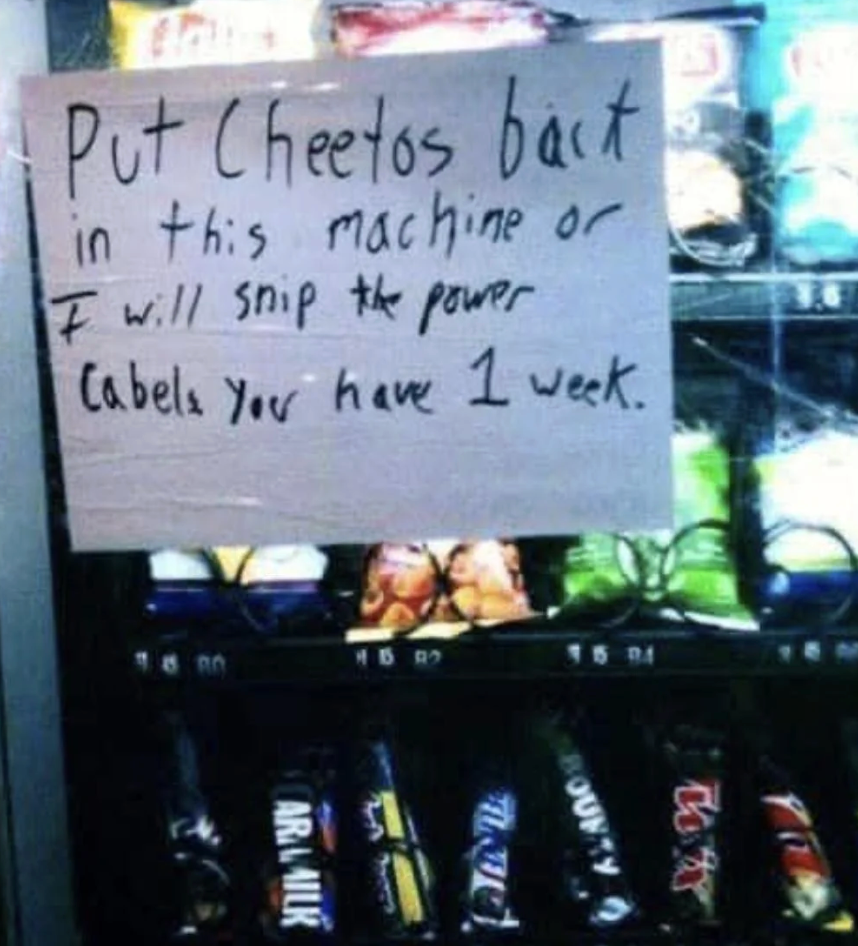 Put Cheetos back
in this machine or
I will snip the power
Cabels you have 1 week.
B2
B4
BOUNTY
Twix